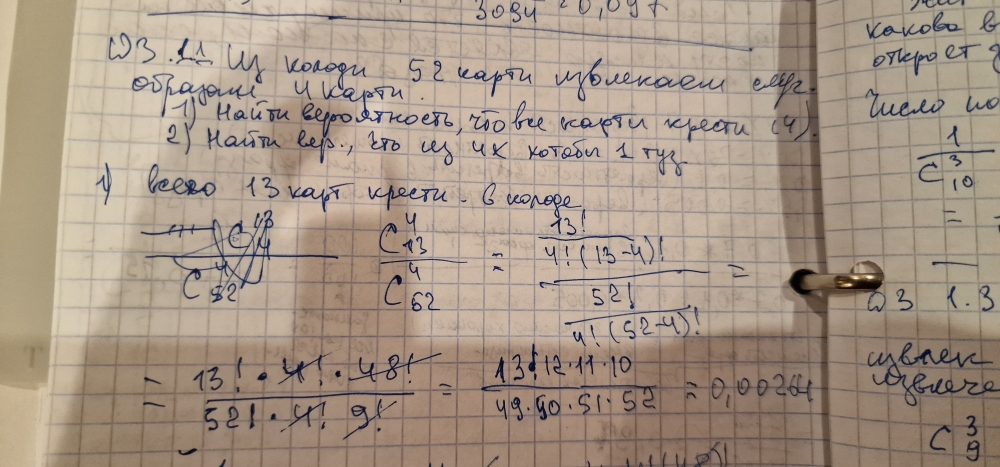 3094
ДЗ 1.1 Из колоды 52 карты извлекаем случ.
образом 4 карты.
1) Найти вероятность, что все карты крести (4).
2) Найти вер., что из них хотябы 1 туз
1) всего 13 карт крести в колоде
C⁴₁₃ / C⁴₅₂ = (13! / 4!(13-4)!) / (52! / 4!(52-4)!) =
= 13! · 4! · 48! / 52! · 4! 9! = 13·12·11·10 / 49·50·51·52 = 0,00264
какова в
откроет
Число
1 / C³₁₀ =
ДЗ 1.3
C³₉